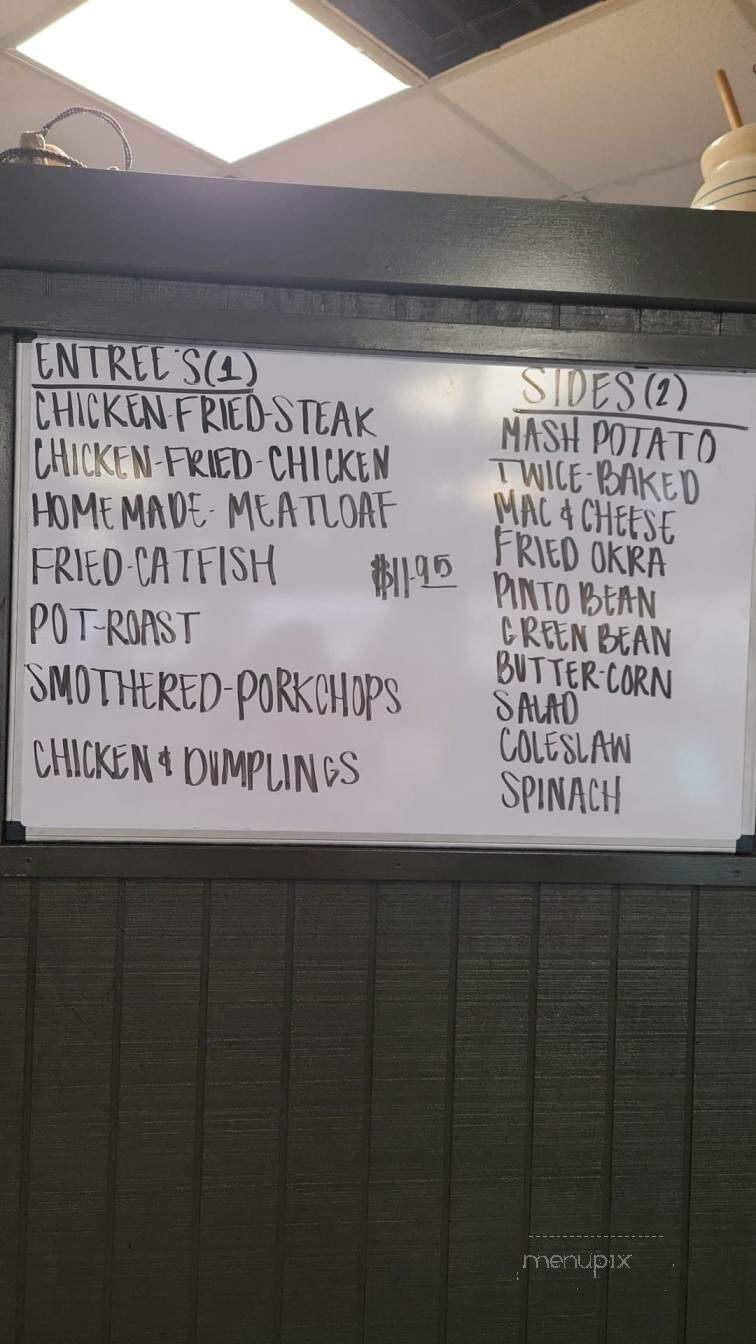 ENTREE'S(1)
CHICKEN-FRIED-STEAK
CHICKEN-FRIED-CHICKEN
HOMEMADE-MEATLOAF
FRIED-CATFISH
POT-ROAST
SMOTHERED-PORKCHOPS
CHICKEN & DUMPLINGS
$11.95
SIDES(2)
MASH POTATO
TWICE-BAKED
MAC & CHEESE
FRIED OKRA
PINTO BEAN
GREEN BEAN
BUTTER-CORN
SALAD
COLESLAW
SPINACH
menupix